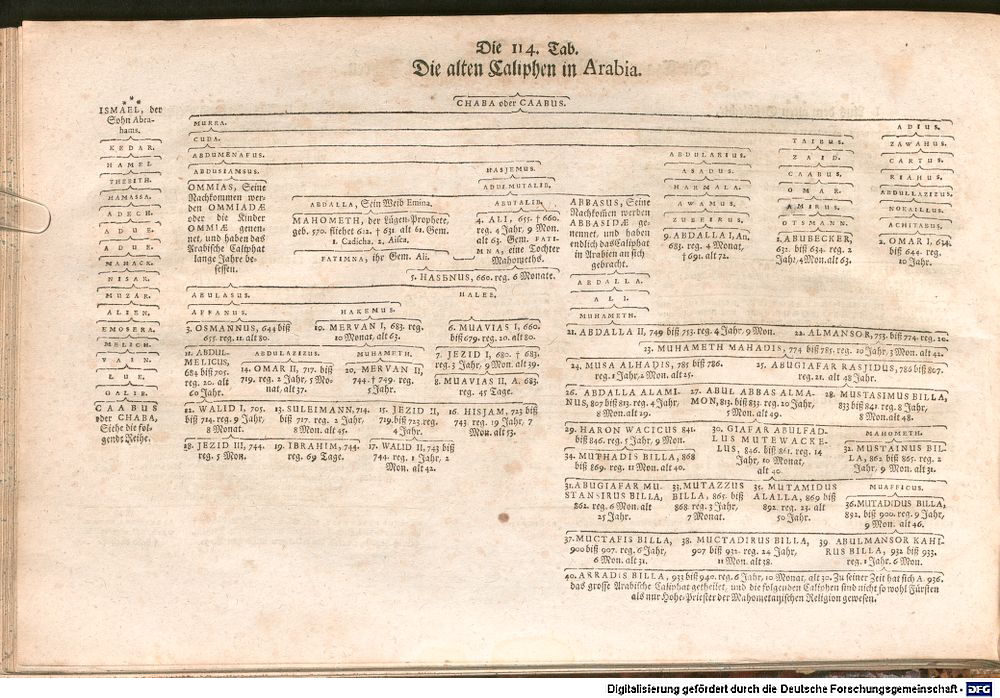 Die 114. Tab.
Die alten Caliphen in Arabia.
CHABA oder CAABUS.
ISMAEL, der
Sohn Abra-
hams.
KEDAR.
HAMEL
THEBITH.
HAMASSA.
ADECH.
ADUE.
ADUE.
MAHACK.
NISAR.
MUZAR.
ALIEN.
EMOSERA.
MELICH.
VAIN.
LUE.
GALIB.
CAABUS
oder CHABA,
Siehe die fol-
gende Reihe.
MURRA.
CUDA.
ABDUMENAFUS.
ABDUSIAMSUS.
OMMIAS, Seine
Nachkommen wer-
den OMMIADÆ
oder die Kinder
OMMIÆ genen-
net, und haben das
Arabische Caliphat
lange Jahre be-
sessen.
HASJEMUS.
ADULMUTALIB.
ABDALLA, Sein Weib Emina.
MAHOMETH, der Lügen-Prophete,
geb. 570. fliehet 612. † 631 alt 61. Gem.
1. Cadicha. 2. Aisca.
FATIMNA, ihr Gem. Ali.
ABUTALIB.
4. ALI, 655. † 660.
reg. 4 Jahr, 9 Mon.
alt 63. Gem. FATI-
MNA, eine Tochter
Mahomeths.
5. HASENUS, 660. reg. 6 Monate.
ABBASUS, Seine
Nachkossen werden
ABBASIDÆ ge-
nennet, und haben
endlich das Caliphat
in Arabien an sich
gebracht.
ABDALLA.
ALI.
MUHAMETH.
ABDULARIUS.
ASADUS.
HARMALA.
AWAMUS.
ZUBEIRUS.
9. ABDALLA I, An.
683. reg. 4 Monat,
† 691. alt 72.
TAIBUS.
ZAID.
CAABUS.
OMAR.
AMIRUS.
OTSMANN.
1. ABUBECKER,
632. biß 634. reg. 2
Jahr, 4 Mon. alt 63.
ADIUS.
ZAWAHUS.
CARTUS.
RIAHUS.
ABDULLAZIZUS.
NORAILLUS.
ACHITABUS.
2. OMAR I, 634.
biß 644. reg.
10 Jahr.
ABULASUS.
HALEB.
AFFANUS.
HAKEMUS.
3. OSMANNUS, 644 biß
655. reg. 11 alt 80.
10. MERVAN I, 683. reg.
10 Monat, alt 63.
6. MUAVIAS I, 660.
biß 679. reg. 20. alt 80.
11. ABDUL-
MELICUS,
684 biß 705.
reg. 20. alt
60 Jahr.
ABDULAZIZUS.
14. OMAR II, 717. biß
719. reg. 2 Jahr, 5 Mo-
nat, alt 37.
MUHAMETH.
20. MERVAN II,
744. † 749. reg.
5 Jahr.
7. JEZID I, 680. † 683.
reg. 3 Jahr, 9 Mon. alt 39.
8. MUAVIAS II, A. 683.
reg. 45 Tage.
12. WALID I, 705.
biß 714. reg. 9 Jahr,
8 Mon. alt 45.
13. SULEIMANN, 714.
biß 717. reg. 2 Jahr,
8 Monat.
15. JEZID II,
719. biß 723. reg.
4 Jahr.
16. HISJAM, 723 biß
743. reg. 19 Jahr, 7
Mon. alt 53.
18. JEZID III, 744.
reg. 5 Mon.
19. IBRAHIM, 744.
reg. 69 Tage.
17. WALID II, 743 biß
744. reg. 1 Jahr, 2
Mon. alt 42.
21. ABDALLA II, 749 biß 753. reg. 4 Jahr, 9 Mon.
22. ALMANSOR, 753. biß 774 reg. 20.
23. MUHAMETH MAHADIS, 774 biß 785. reg. 10 Jahr, 3 Mon. alt 42.
24. MUSA ALHADIS, 785 biß 786.
reg. 1 Jahr, 2 Mon. alt 25.
25. ABUGIAFAR RASJIDUS, 786 biß 807.
reg. 21. alt 48 Jahr.
26. ABDALLA ALAMI-
NUS, 807 biß 813. reg. 4 Jahr,
8 Mon. alt 29.
27. ABUL ABBAS ALMA-
MON, 813. biß 833. reg. 20 Jahr,
5 Mon. alt 49.
28. MUSTASIMUS BILLA,
833 biß 841 reg. 8 Jahr,
8 Mon. alt 48.
29. HARON WACICUS 841.
biß 846. reg. 5 Jahr, 9 Mon.
34. MUTHADIS BILLA, 868
biß 869. reg. 11 Mon. alt 40.
30. GIAFAR ABULFAD-
LUS MUTEWACKE-
LUS, 846. biß 861. reg. 14
Jahr, 10 Monat,
alt 40.
MAHOMETH.
32. MUSTAINUS BIL-
LA, 862 biß 865. reg. 2
Jahr, 9 Mon. alt 31.
31. ABUGIAFAR MU-
STANSIRUS BILLA,
862. reg. 6 Mon. alt
25 Jahr.
33. MUTAZZUS
BILLA, 865. biß
868. reg. 3 Jahr,
7 Monat.
35. MUTAMIDUS
ALALLA, 869 biß
892. reg. 23. alt
50 Jahr.
MUAFFICUS.
36. MUTADIDUS BILLA,
892. biß 900. reg. 9 Jahr,
9 Mon. alt 46.
37. MUCTAFIS BILLA,
900 biß 907. reg. 6 Jahr,
6 Mon. alt 31.
38. MUCTADIRUS BILLA,
907 biß 932. reg. 24 Jahr,
11 Mon. alt 38.
39. ABULMANSOR KAHI-
RUS BILLA, 932 biß 933.
reg. 1 Jahr. 6 Mon.
40. ARRADIS BILLA, 933 biß 940. reg. 6 Jahr, 10 Monat, alt 30. Zu seiner Zeit hat sich A. 936.
das grosse Arabische Caliphat getheilet, und die folgenden Caliphen sind nicht so wohl Fürsten
als nur Hohe-Priester der Mahometanischen Religion gewesen.
Digitalisierung gefördert durch die Deutsche Forschungsgemeinschaft - DFG